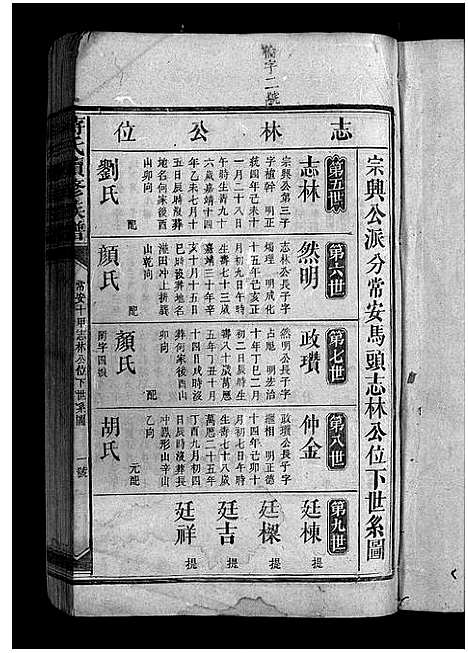 字二號
志林公位
宗興公派分常安馬頭志林公位下世系圖
第五世
志林
宗興公第三子
字植幹 明正
統四年己未十
一月二十八日
午時生壽九十
六歲嘉靖十四
年乙未七月十
五日辰時沒葬
地名何家後酉
山卯向
劉氏
配
第六世
然明
志林公長子字
燭理 明成化
十五年己亥正
月初九日午時
生壽七十三歲
嘉靖三十年辛
亥十月十五日
巳時沒葬地名
滋田沖上折巽
山乾向
顏氏
配
第七世
政瓚
然明公長子字
占魁 明弘治
十年丁巳二月
初二日辰時生
壽八十歲萬曆
五年丁丑十月
十四日戌時沒
葬何家酉山
卯向
顏氏
配
第八世
仲金
政瓚公長子字
繼相 明正德
十四年己卯十
月初七日午時
生壽七十八歲
萬曆二十五年
丁酉九月初四
日辰時沒葬長
沖鳳形山辛山
乙向
胡氏
元配
第九世
廷棟
提
廷樑
提
廷吉
廷祥
提
氏續修族譜
常安十甲志林公位下世系圖
閏字四號
一號